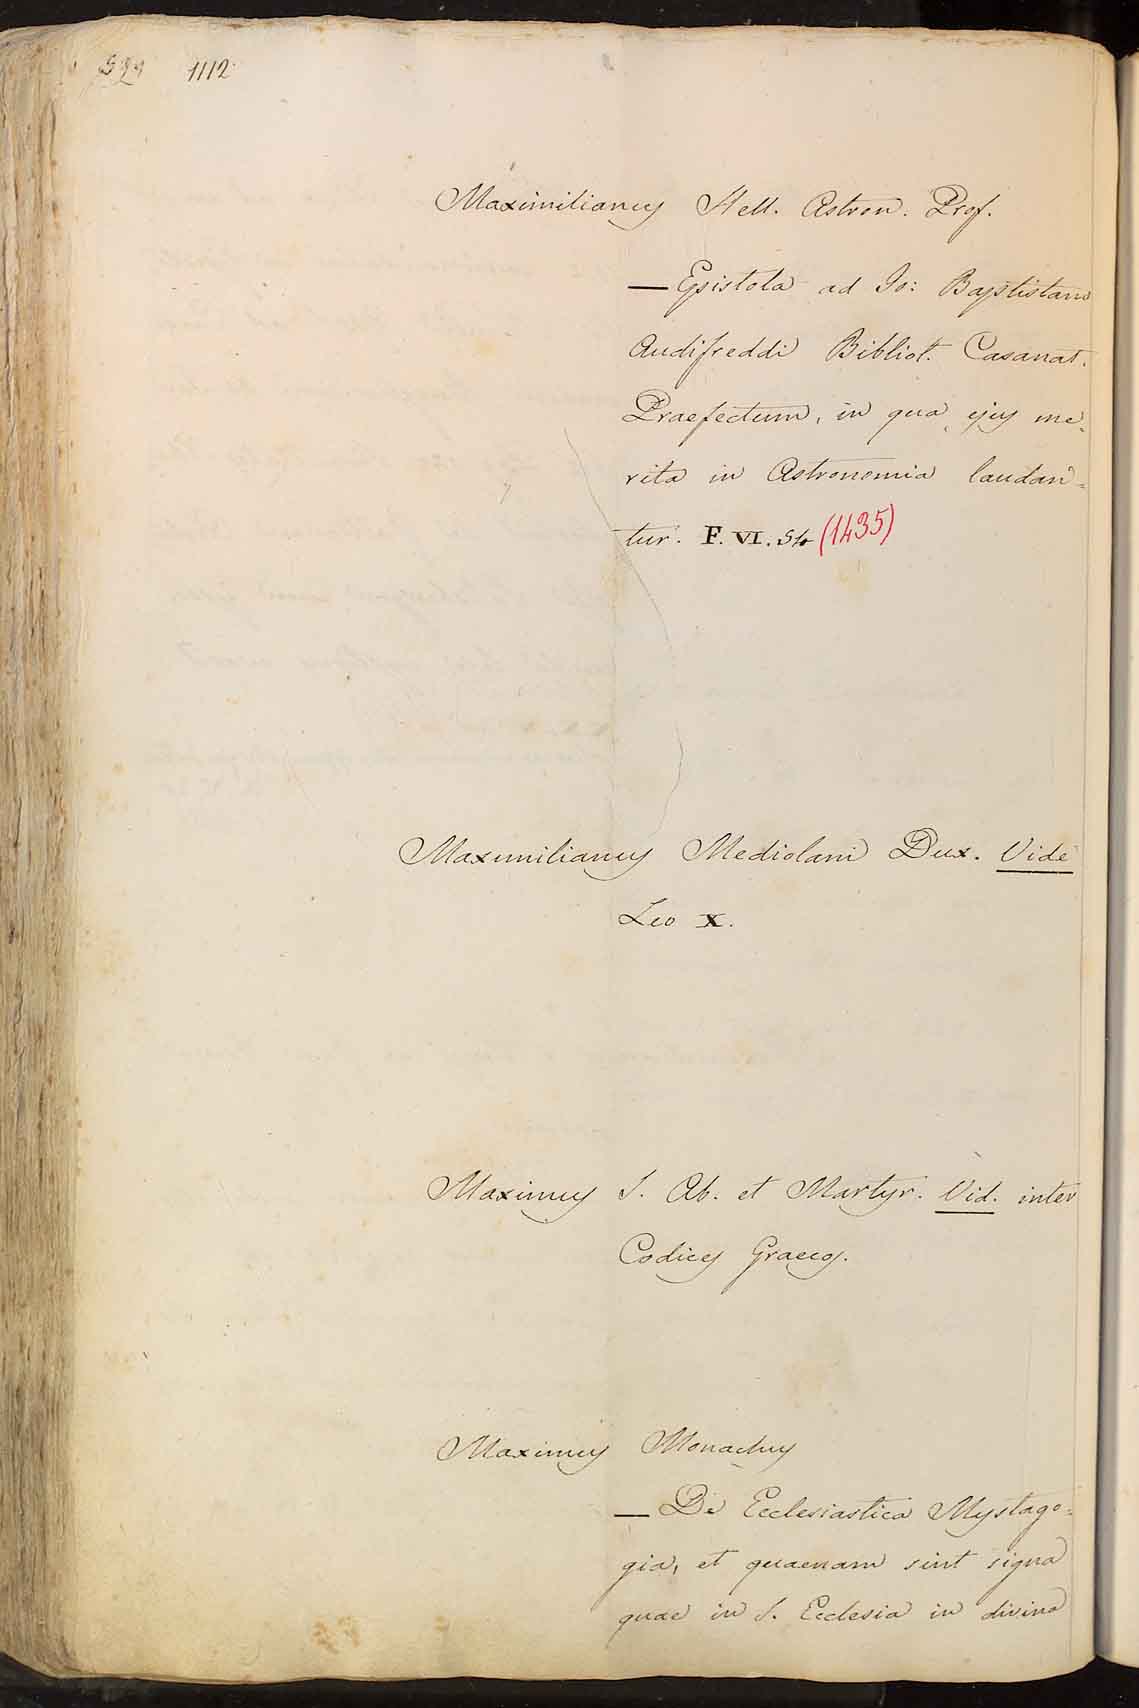 599 1112
Maximilianus Hell. Astron. Prof.
— Epistola ad Io: Baptistam
Audifreddi Bibliot. Casanat.
Praefectum, in qua ejus me-
rita in Astronomia laudan=
tur. F. VI. (1435)
Maximilianus Mediolani Dux. Vide
Leo X.
Maximus S. Ab. et Martyr. Vid. inter
Codices Graecos.
Maximus Monachus
— De Ecclesiastica Mystago=
gia, et quaenam sint signa
quae in S. Ecclesia in divina